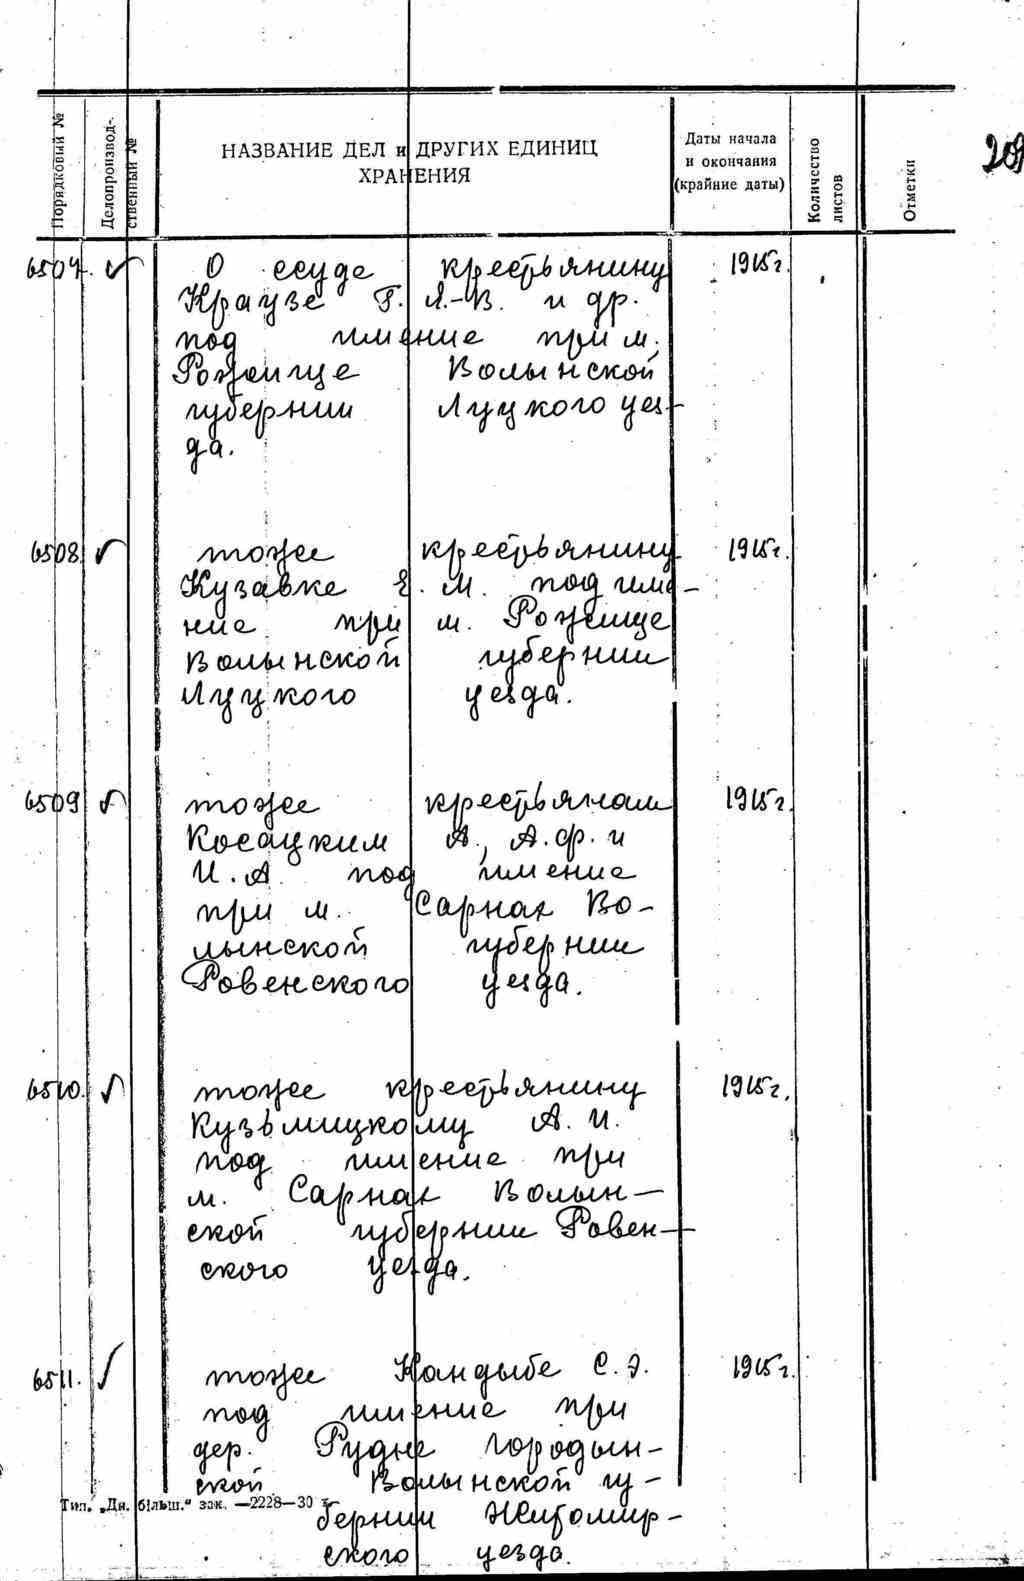 Порядковый №
Делопроизвод-
ственный №
НАЗВАНИЕ ДЕЛ и ДРУГИХ ЕДИНИЦ
ХРАНЕНИЯ
Даты начала
и окончания
(крайние даты)
Количество
листов
Отметки
6507. О ссуде крестьянину 1915г.
Краузе Г. Я.-В. и др.
под имение при м.
Рожище Волынской
губернии Луцкого уез-
да.
6508. тоже крестьянину 1915г.
Кузавке Е. М. под име-
ние при м. Рожище
Волынской губернии
Луцкого уезда.
6509 тоже крестьянам 1915г.
Косацким А., А.Ф. и
И.А. под имение
при м. Сарнах Во-
лынской губернии
Ровенского уезда.
6510. тоже крестьянину 1915г.
Кузьмицкому А. И.
под имение при
м. Сарнах Волын-
ской губернии Ровен-
ского уезда.
6511. тоже Кандыбе С. Э. 1915г.
под имение при
дер. Рудне Городын-
ской Волынской гу-
Тип. „Дн. більш.“ зак. —2228—30
бернии Житомир-
ского уезда.